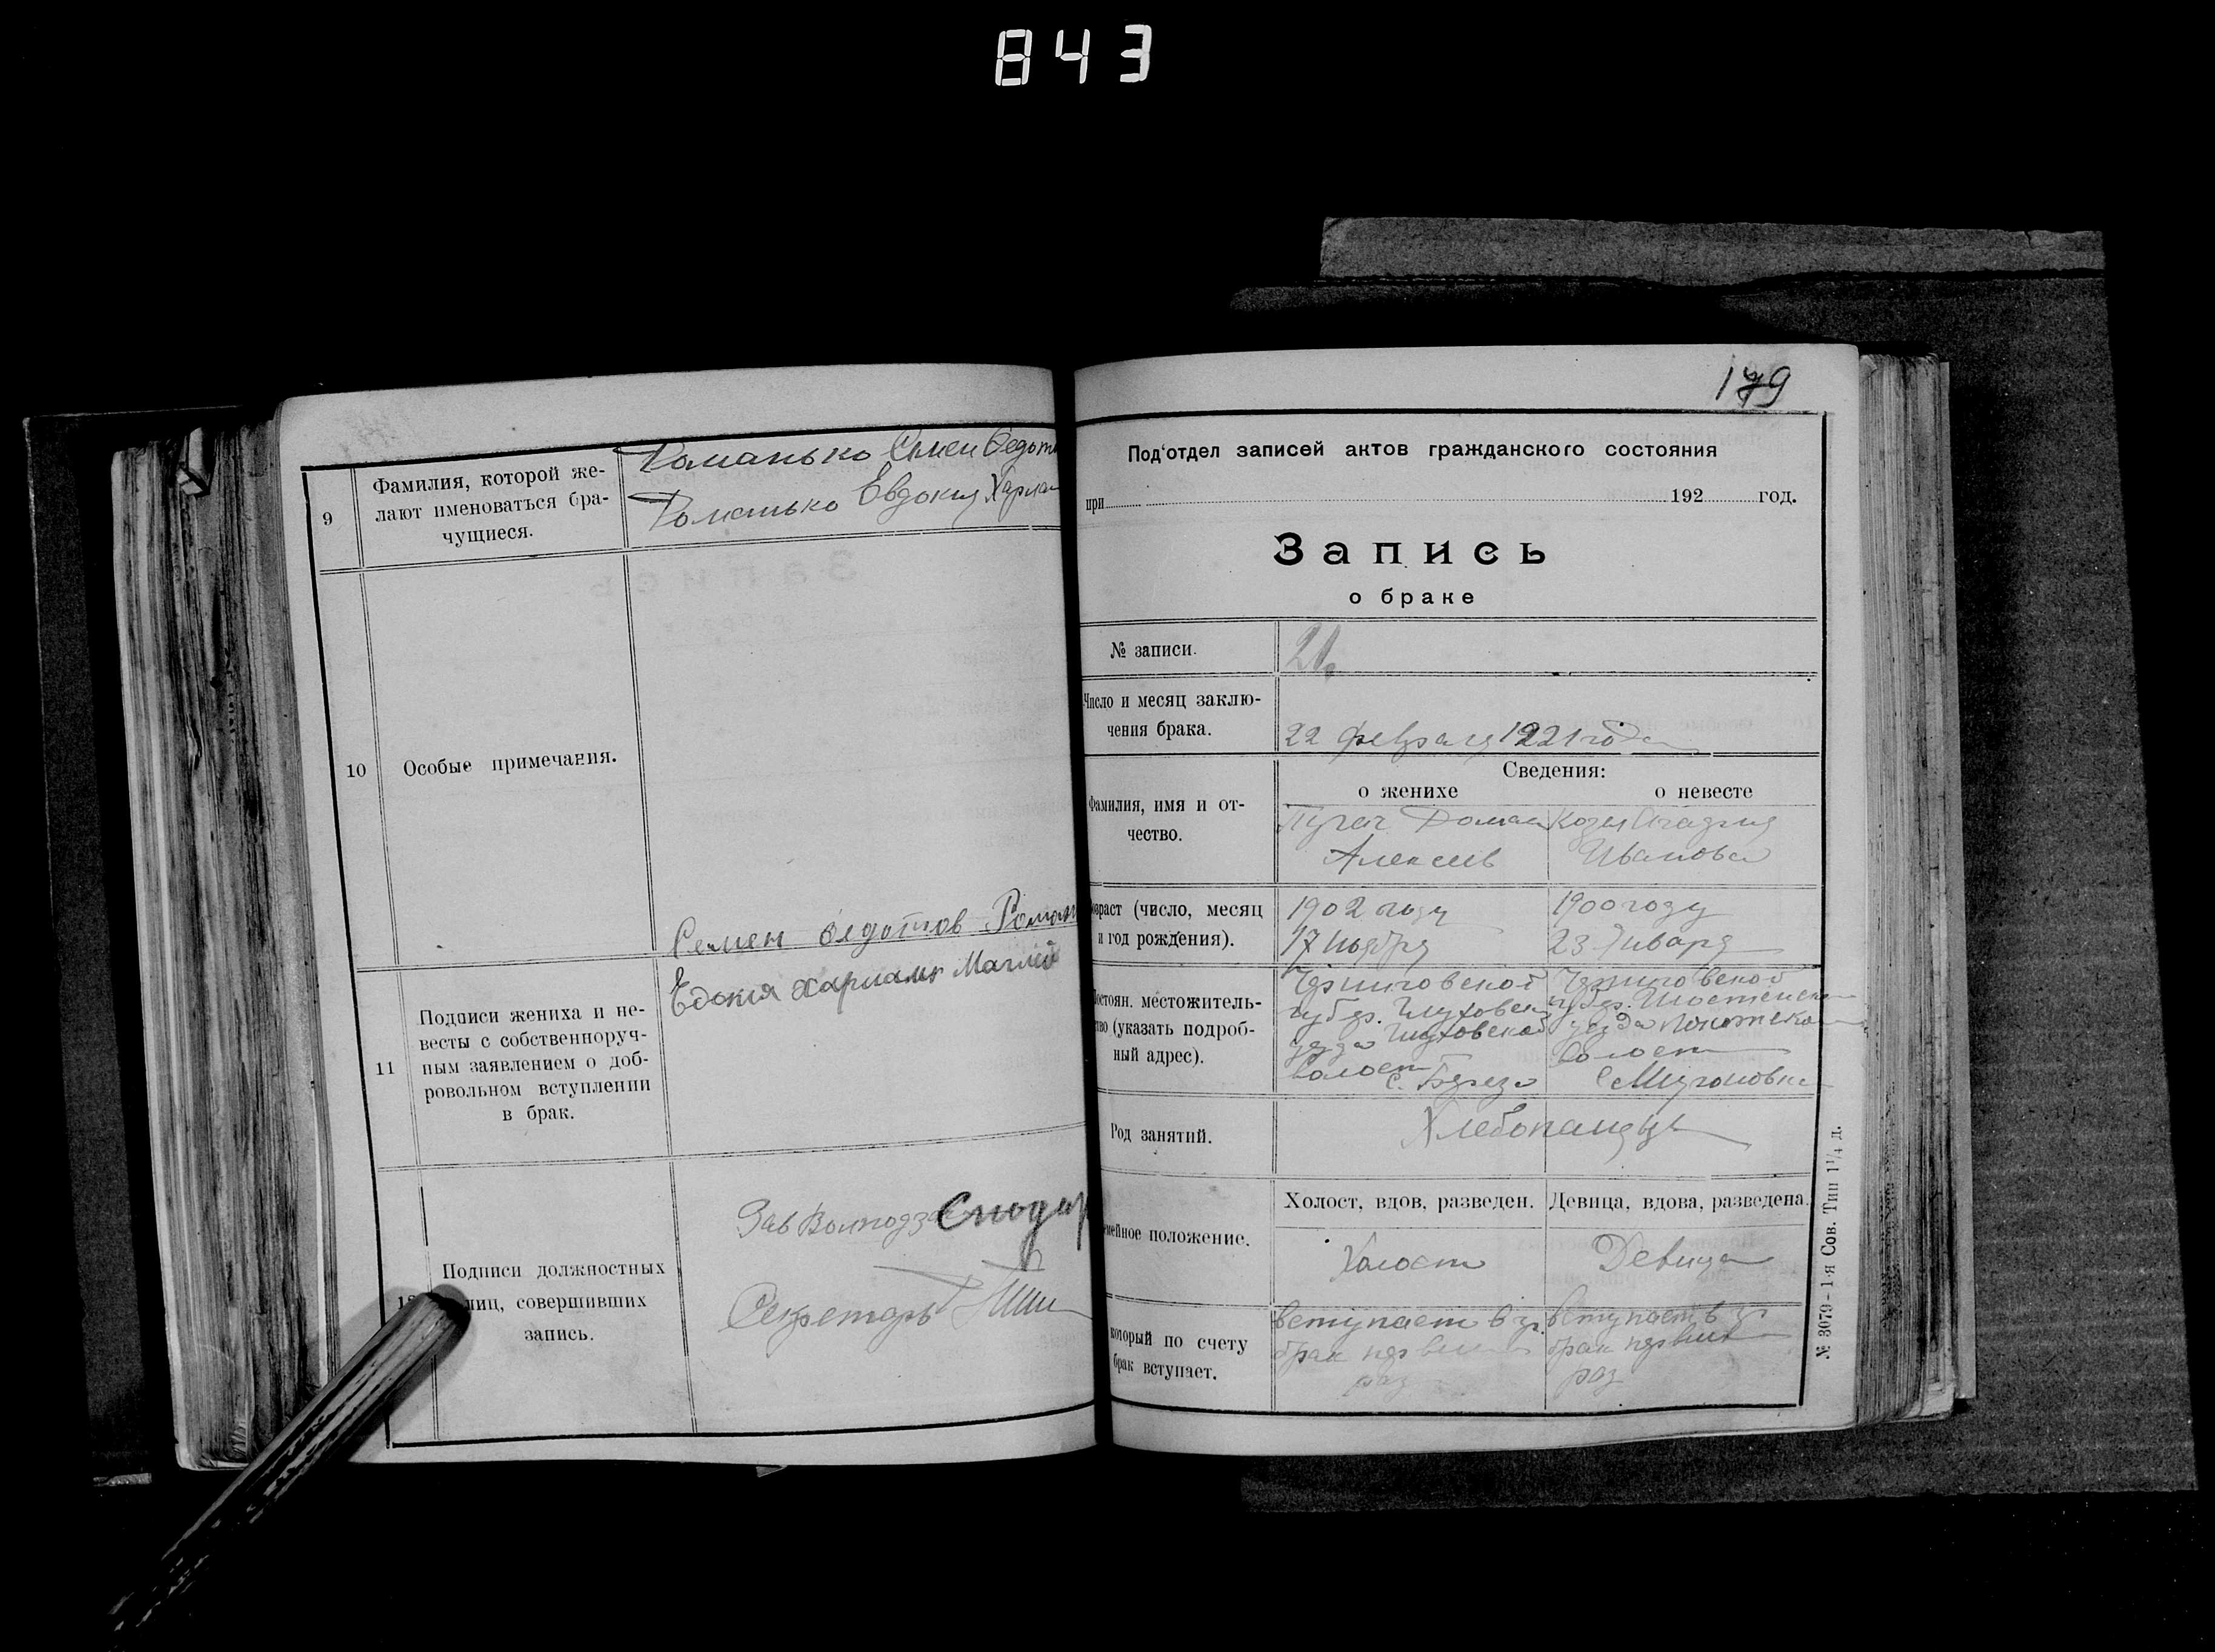 843
9
Фамилия, которой же-
лают именоваться бра-
чущиеся.
Романько Семен Федот
Романько Евдокия Харлам
10
Особые примечания.
11
Подписи жениха и не-
весты с собственноруч-
ным заявлением о доб-
ровольном вступлении
в брак.
Семен Федотов Роман
Евдокия Харламп
Подписи должностных
лиц, совершивших
запись.
Зав
Секретарь
179
Под'отдел записей актов гражданского состояния
при 192 год.
Запись
о браке
№ записи.
21
Число и месяц заклю-
чения брака.
22 февраля 1921 года
Сведения:
о женихе
о невесте
Фамилия, имя и от-
чество.
Пугач Роман
Алексеев
Козел Агафия
Иванова
раст (число, месяц
и год рождения).
1902 году
17 Ноября
1900 году
23 Января
остоян. местожитель-
тво (указать подроб-
ный адрес).
Черниговской
губер. Глуховск
уезда Глуховской
волости
с. Береза
Черниговской
губер. Шостенск
уезда
волости
с.
Род занятий.
Хлебопашец
мейное положение.
Холост, вдов, разведен.
Девица, вдова, разведена.
Холост
Девица
который по счету
брак вступает.
вступает в
брак первый
раз
вступает в
брак первый
раз
№ 3079 – 1-я Сов. Тип 1¼ д.